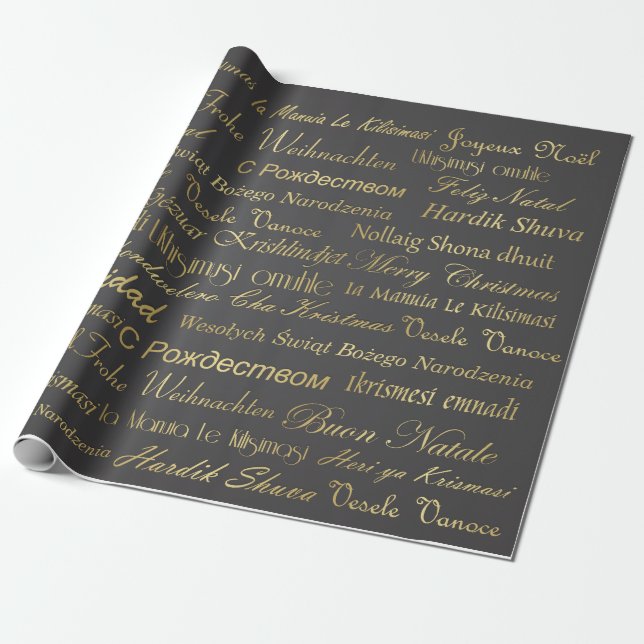 la Manuia Le Kilisimasi Joyeux Noël
Frohe Weihnachten Ukhisimusi omuhle
С Рождеством Feliz Natal
Świąt Bożego Narodzenia Hardik Shuva
Vesele Vanoce Nollaig Shona dhuit
Gëzuar Krishlindjet Merry Christmas
Ukhisimusi omuhle Ia Manuia Le Kilisimasi
Cha Kristmas Vesele Vanoce
Wesołych Świąt Bożego Narodzenia
С Рождеством Ikrismesi emnadi
Frohe Weihnachten Buon Natale
la Manuia Le Kilisimasi Heri ya Krismasi
Narodzenia Hardik Shuva Vesele Vanoce